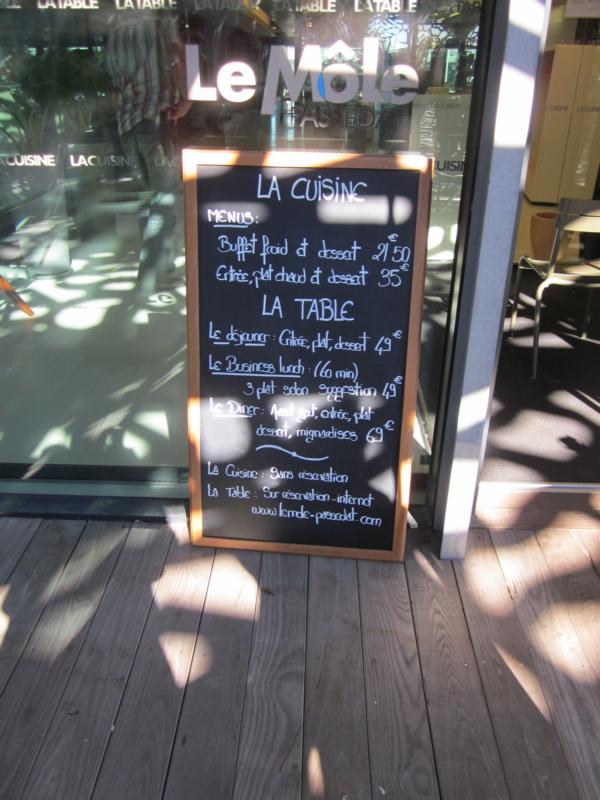 LA TABLE LA TABLE LA TABLE LA TABLE
Le Môle
LA CUISINE
LACUISINE LACUISINE LA CUISINE
LA CUISINE
MENUS:
Buffet froid et dessert 21€50
Entrée, plat chaud et dessert 35€
LA TABLE
Le déjeuner : Entrée, plat, dessert 49€
Le Business lunch : (60 min)
3 plat selon suggestion 49€
Le Diner : Avant goût, entrée, plat
dessert, mignardises 69€
La Cuisine : Sans réservation
La Table : Sur réservation-internet
www.lemole-passedat.com